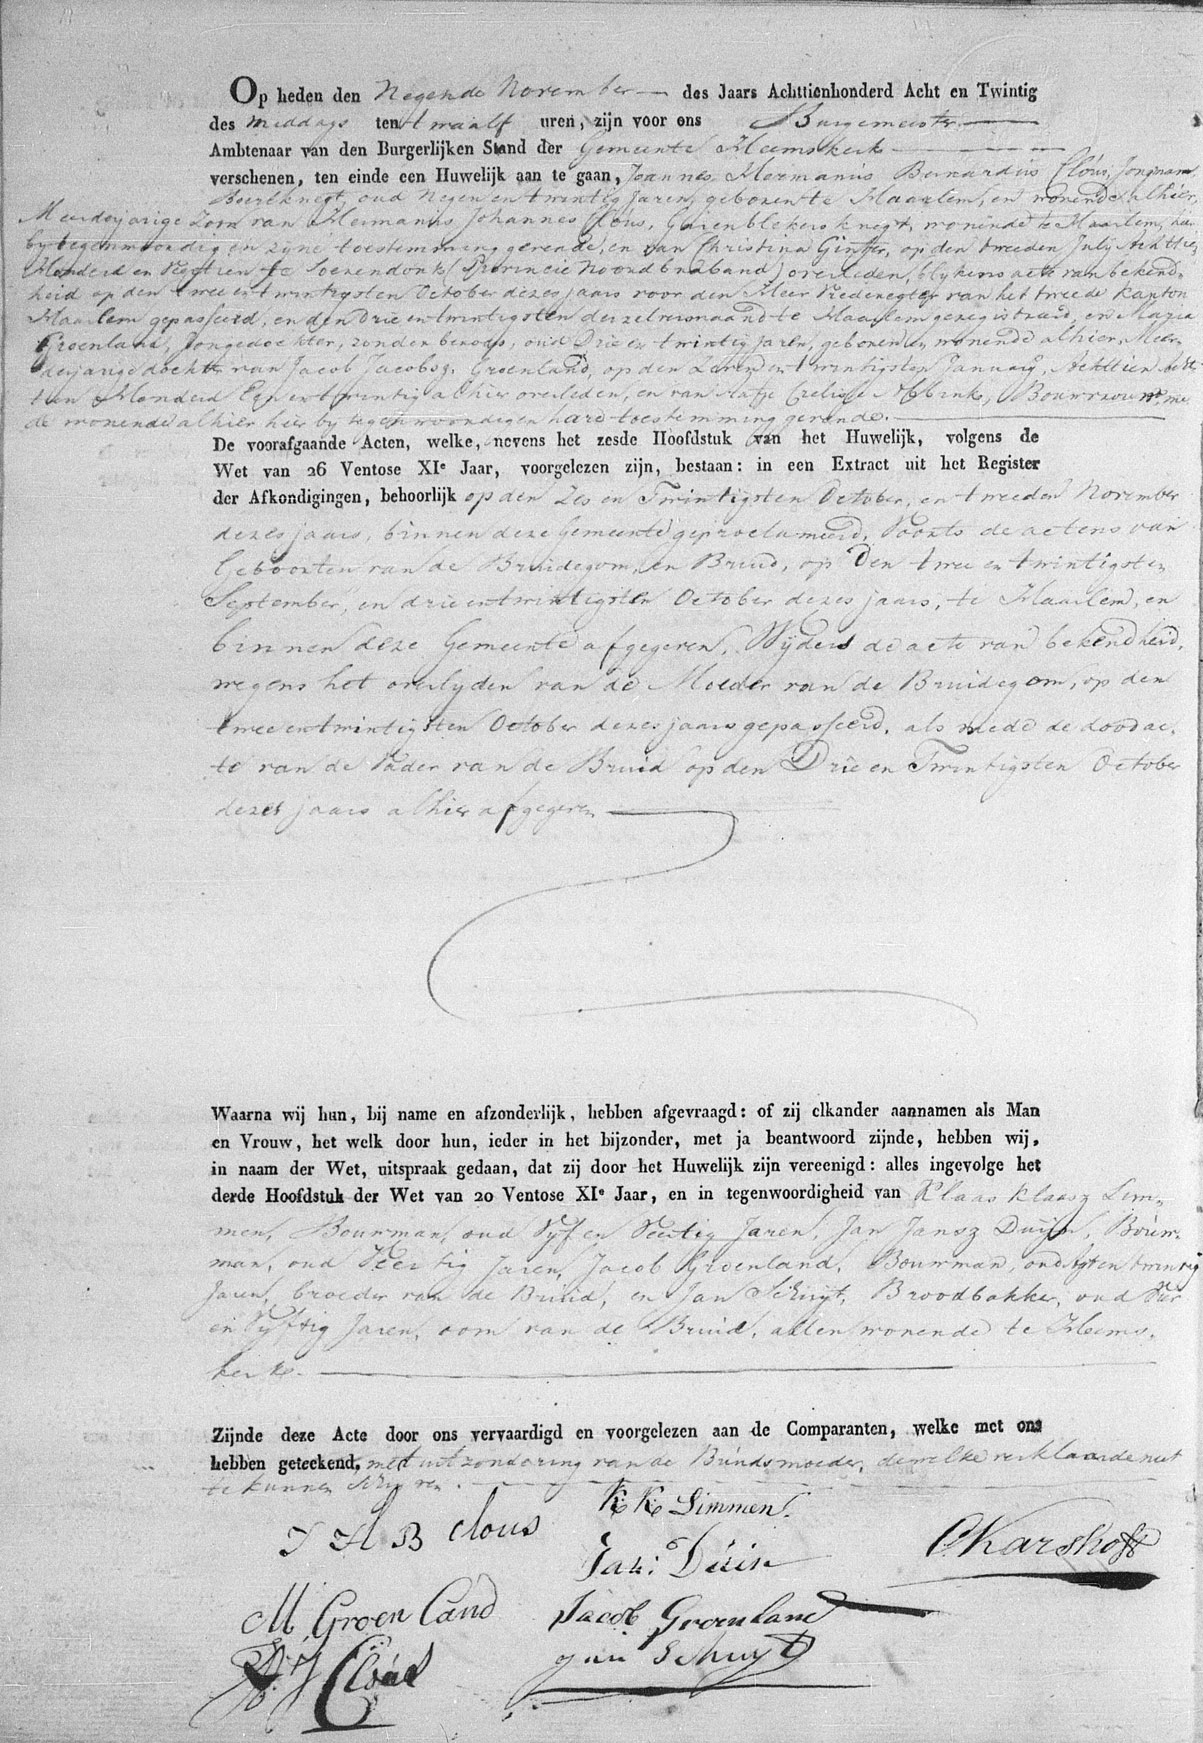 Op heden den Negende November — des Jaars Achttienhonderd Acht en Twintig
des middags ten twaalf uren, zijn voor ons Burgemeester
Ambtenaar van den Burgerlijken Stand der Gemeente Heemskerk
verschenen, ten einde een Huwelijk aan te gaan, Joannes Hermanus Bernardus Cloús, Jongman,
Boereknegt, oud Negen en twintig Jaren, geboren te Haarlem, en wonende alhier,
Meerderjarige Zoon van Hermanus Johannes Cloús, Garenblekersknegt, wonende te Haarlem, hier
by tegenwoordig en zyne toestemming gevende, en van Christina Ginther, op den tweeden July Achttien
Honderd en Veertien te Soerendonk (Provincie Noordbraband) overleden, blykens acte van bekend-
heid op den twee en twintigsten October dezes jaars voor den Heer Vrederegter van het tweede kanton
Haarlem gepasseerd, en den Drie en twintigsten derzelver maand te Haarlem geregistreerd, en Maria
Groenland, Jongedochter, zonder beroep, oud Drie en twintig Jaren, geboren en wonende alhier, Meer-
derjarige dochter van Jacob Jacobsz. Groenland, op den Zeven en twintigsten January, Achttien
Honderd Een en twintig alhier overleden, en van Bouwvrouw, me
de wonende alhier hier by tegenwoordig en hare toestemming gevende.
De voorafgaande Acten, welke, nevens het zesde Hoofdstuk van het Huwelijk, volgens de
Wet van 26 Ventose XIe Jaar, voorgelezen zijn, bestaan: in een Extract uit het Register
der Afkondigingen, behoorlijk op den Zes en Twintigsten October, en tweeden November
dezes jaars, binnen deze Gemeente geproclameerd, Voorts de actens van
Geboorten van de Bruidegom, en Bruid, op Den twee en twintigsten
September, en drie en twintigsten October dezes jaars, te Haarlem, en
binnen deze Gemeente afgegeven, Wyders de acte van bekendheid,
wegens het overlyden van de Moeder van de Bruidegom, op den
twee en twintigsten October dezes jaars gepasseerd, als mede de doodac-
te van de Vader van de Bruid op den Drie en Twintigsten October
dezes jaars alhier afgegeven
Waarna wij hun, bij name en afzonderlijk, hebben afgevraagd: of zij elkander aannamen als Man
en Vrouw, het welk door hun, ieder in het bijzonder, met ja beantwoord zijnde, hebben wij,
in naam der Wet, uitspraak gedaan, dat zij door het Huwelijk zijn vereenigd: alles ingevolge het
derde Hoofdstuk der Wet van 20 Ventose XIe Jaar, en in tegenwoordigheid van Klaas Klaasz Lim-
men, Bouwman, oud Vyf en Veertig Jaren, Jan Jansz Duijn, Bouw-
man, oud Veertig Jaren, Jacob Groenland, Bouwman, oud Agt en twintig
Jaren, broeder van de Bruid, en Jan Schuyt, Broodbakker, oud Vier
en Vyftig Jaren, oom van de Bruid, allen wonende te Heems-
kerk.
Zijnde deze Acte door ons vervaardigd en voorgelezen aan de Comparanten, welke met ons
hebben geteekend, met uitzondering van de Bruidsmoeder, dewelke verklaarde niet
te kunnen schryven.
J H B Cloùs
K K Limmen.
Jan: Duin
C Karshoff
M Groen Land
Jacob Groenland
H J Cloùs
Jan Schuyt